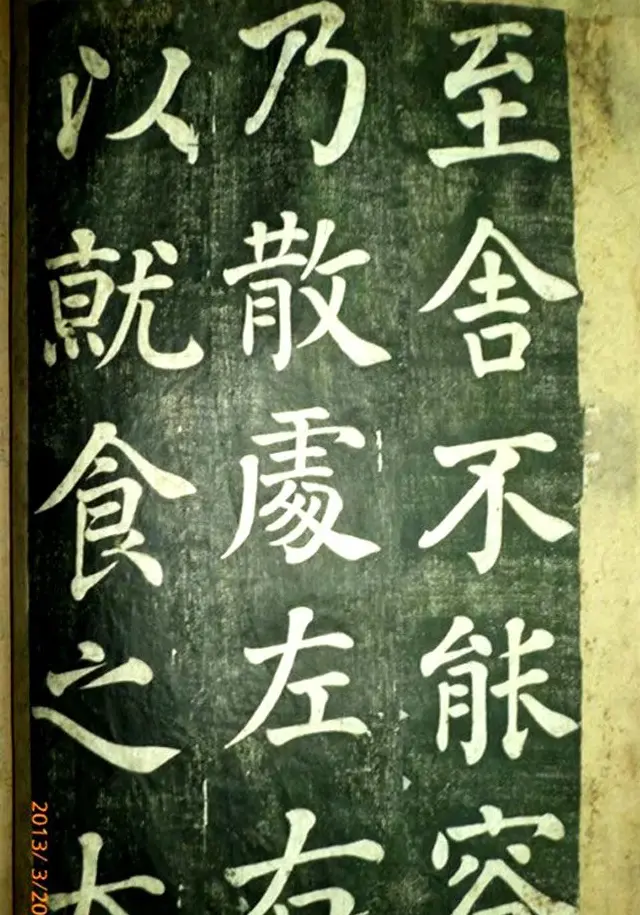 至舍不能容
乃散處左右
以就食之
2013/3/20